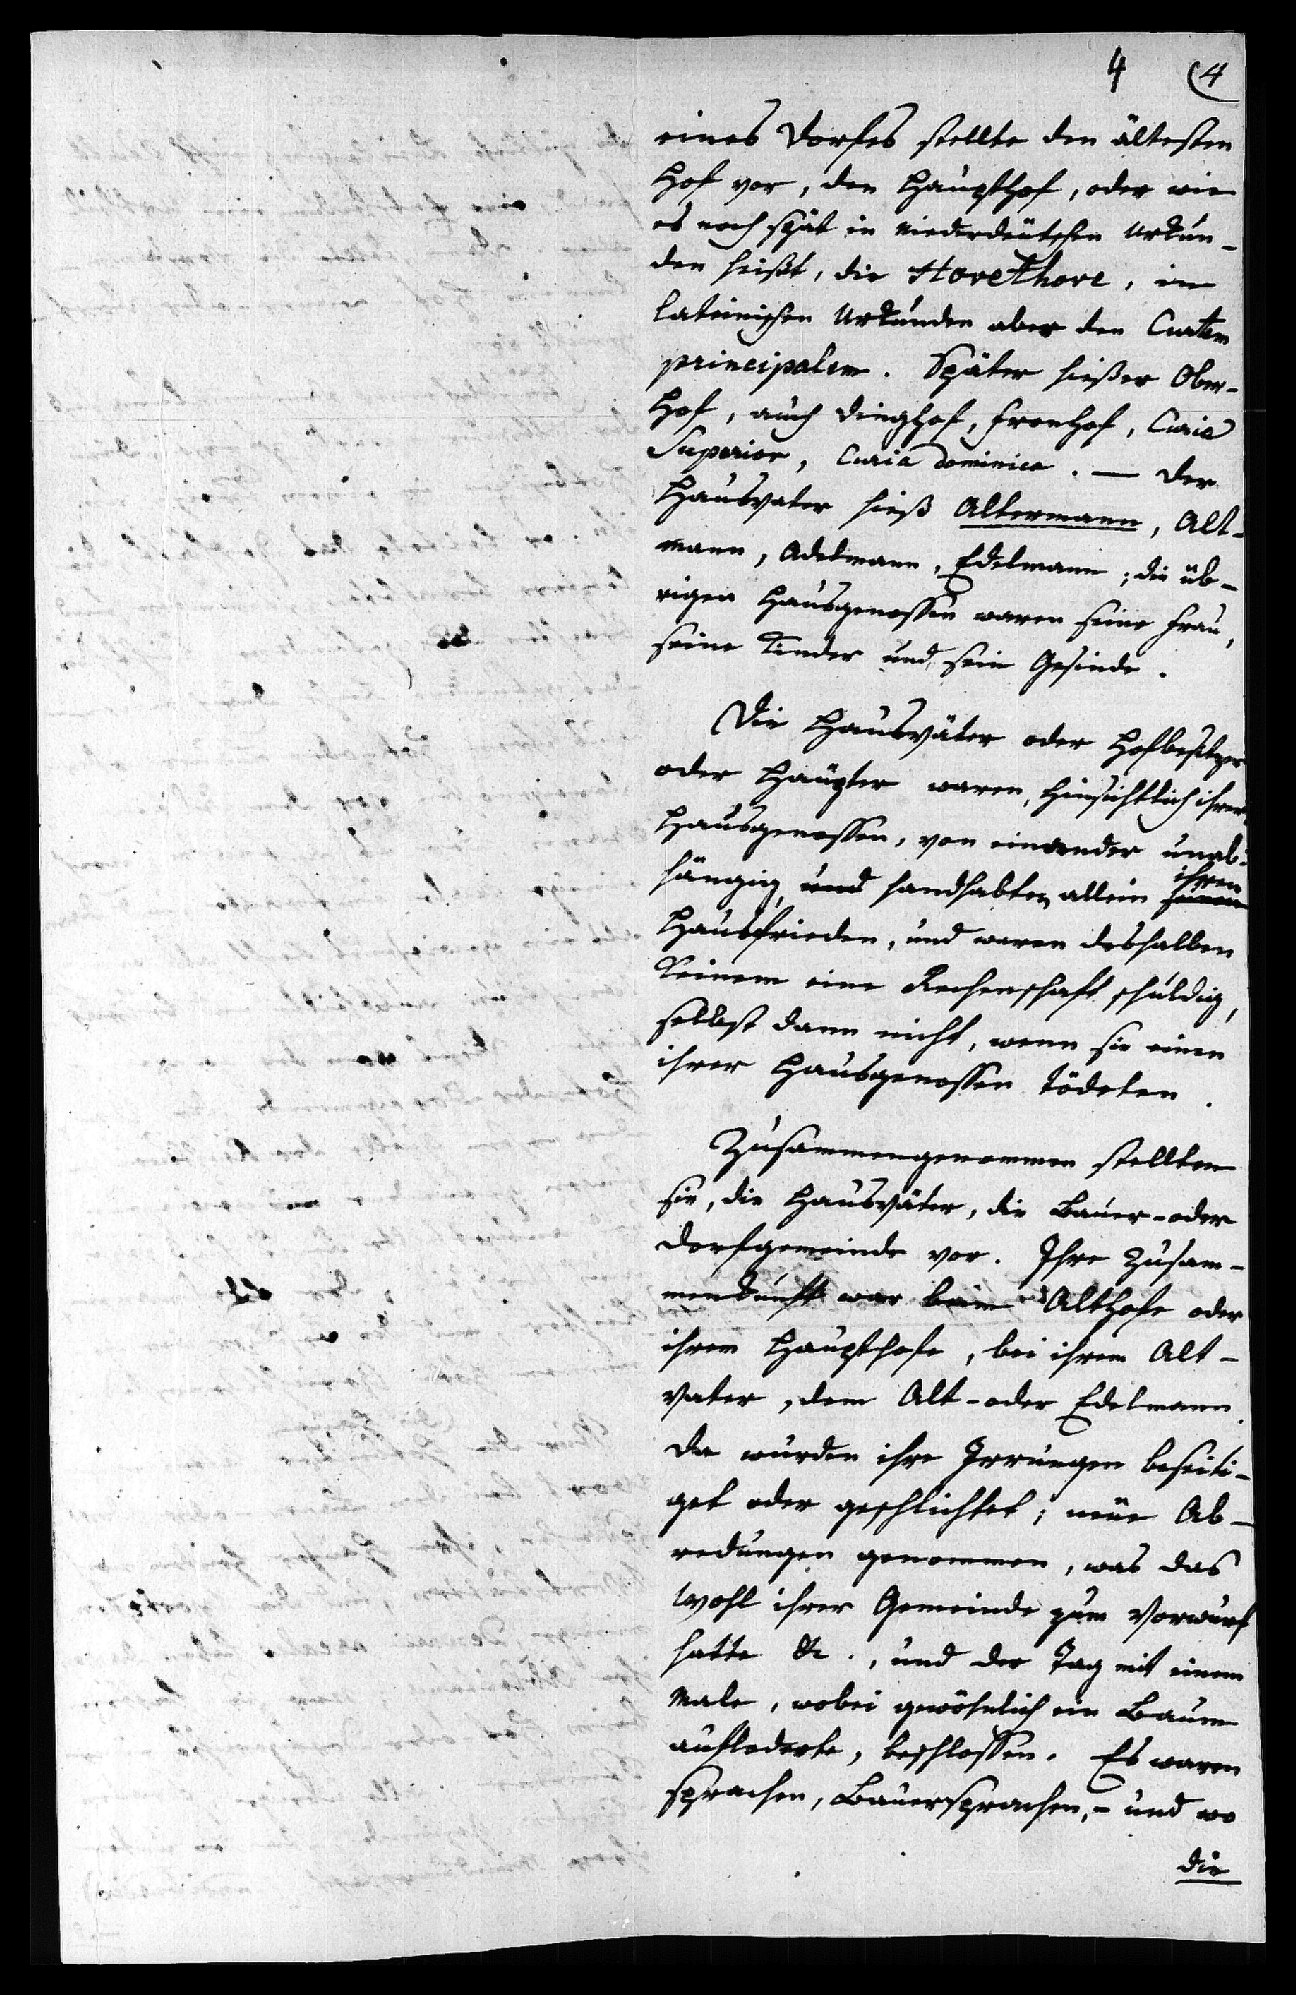 4 (4
eines Dorfes stellte den ältesten
Hof vor, den Haupthof, oder wie
es noch spät in niederdeutschen Urkun-
den heißt, die Hovethove, in
lateinischen Urkunden aber den Curtem
principalem. Später hieß er Ober-
hof, auch Dinghof, Fronhof, Curia
Superior, Curia dominica. — Der
Hausvater hieß Altermann, Alt-
mann, Adelmann, Edelmann; die üb-
rigen Hausgenossen waren seine Frau,
seine Kinder und sein Gesinde.
Die Hausväter oder Hofbesitzer
oder Häupter waren, hinsichtlich ihrer
Hausgenossen, von einander unab-
hängig, und handhabten allein seinen
ihren
Hausfrieden, und waren deshalben
keinem eine Rechenschaft schuldig,
selbst dann nicht, wenn sie einen
ihrer Hausgenossen tödeten.
Zusammengenommen stellten
sie, die Hausväter, die Bauer- oder
Dorfgemeinde vor. Ihre Zusam-
menkunft war beim Althofe oder
ihrem Haupthofe, bei ihrem Alt-
vater, dem Alt- oder Edelmann.
Da wurden ihre Irrungen beseiti-
get oder geschlichtet; neue Ab-
redungen genommen, was das
Wohl ihrer Gemeinde zum Vorwurf
hatte &c., und der Tag mit einem
Male, wobei gewöhnlich ein Baum
aufloderte, beschlossen. Es waren
Sprachen, Bauersprachen, – und wo
die